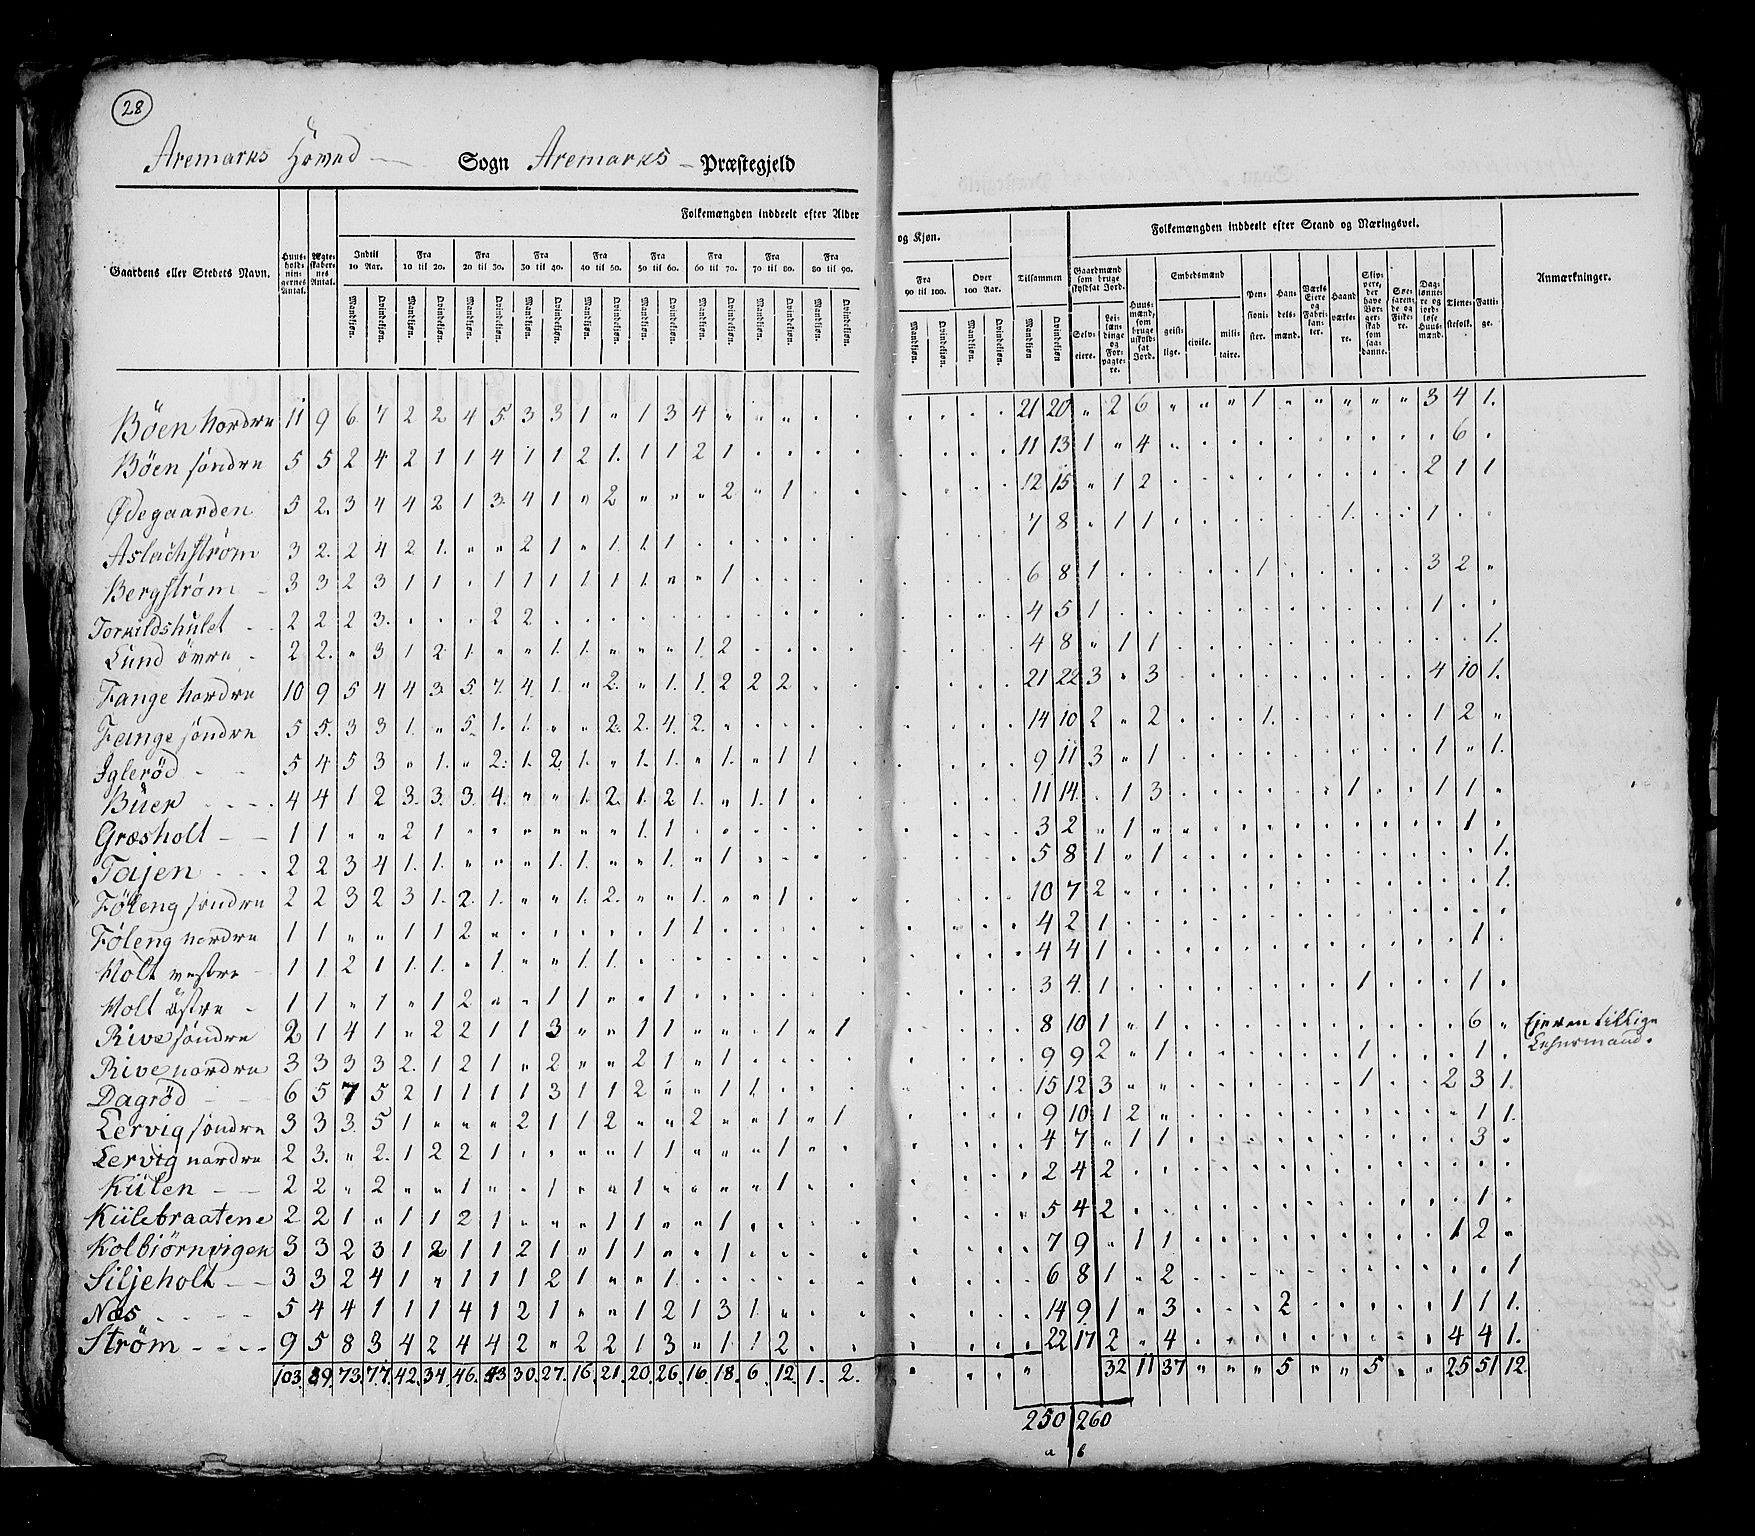 28
Aremarks Hoved Sogn Aremarks Præstegjeld
Folkemængden inddeelt efter Alder og Kjøn. Folkemængden inddeelt efter Stand og Næringsvei.
Gaardens eller Stedets Navn. Huusholdningernes Antal. Ægteskabernes Antal. Indtil 10 Aar. Fra 10 til 20. Fra 20 til 30. Fra 30 til 40. Fra 40 til 50. Fra 50 til 60. Fra 60 til 70. Fra 70 til 80. Fra 80 til 90. Fra 90 til 100. Over 100 Aar. Tilsammen Gaardmænd som bruge skyldsat Jord. Embedsmænd Anmærkninger.
Mandkjøn. Qvindekjøn. Selveiere. Leilændinge og Forpagtere. Huusmænd, som bruge uskyldsat Jord. geistlige. civile. militaire. Pensionister. Handelsmænd. Værks Eiere og Fabrikanter. Haandværkere. Skippere, der have Borgerskab som saadanne. Søefarende og Fiskere. Daglønnere og jordløse Huusmænd. Tjenestefolk. Fattige.
Böen Nordre 11 9 6 7 2 2 4 5 3 3 1 " 1 3 4 " " " " . . . . . . 21 20 " 2 6 " " " 1 " " " " " 3 4 1.
Böen söndre 5 5 2 4 2 1 1 4 1 1 2 1. 1 1 2 1 . . . . . . . . 11 13 1 " 4 . . . . . . . . . . 6 .
Ødegaarden 5 2. 3 4 4 2 1 3 4 1 " 2 " " " 2 " 1 . . . . . . 12 15 " 1 2 . . . . . . . . . 2 1 1
Aslachström 3 2. 2 4 2 1. " " 2 1 " 1. 1 1 . . . . . . . . . . 7 8 . 1 1 . . . . . . 1. . . 1 . .
Bergström 3 3 2 3 1 1 . 1 1 1 1 1 1. " " 1 . . . . . . . . 6 8 1 . . . . . 1 . . . . . 3 2 "
Torkildshulet 2 2 2 3. . . . 2 2 . . . . . . . . . . . . . . . 4 5 1 . . . . . . . . . . . 1 . .
Lund övre 2 2. " 3 1 2 1. " " 1 1. " " " 1. 2 . . . . . . . . 4 8 " 1 1 . . . . . . . . . . . 1.
Fange Nordre 10 9 5 4 4 3 5. 7. 4. 1. " 2. " 1. 1. 2 2 2 . . . . . . 21 22 3 " 3 . . . . . . . . . 4 10 1.
Fange söndre 5 5. 3 3 1. " 5. 1. 1. " " 2. 2. 4. 2. . . . . . . . . . 14 10 2 " 2 . . . 1. . . . . . 1 2 "
Iglerød 5 4 5 3 " 1. " 2. 1. 2 1. " 1. 1. " 1. " 1 1 . . . . . 9 11 3 " 1 . . . . . . . . . 1 " 1.
Büer 4 4 1 2 3. 3. 3. 4. " " 1. 2. 1. 2 1. " 1. 1 . . . . . . 11 14. . 1 3 . . . . . . 1 . . 1 1 "
Græsholt 1 1 " " 2 1 " " " " " " 1. 1 . . . . . . . . . . 3 2 " 1 " " . . . . . . . . . 1 .
Tajen 2 2 3 4 1. 1. " " " 1. 1. " " 1. " 1 . . . . . . . . 5 8 1 " 1 . . . . . . . . . . . 1.
Föleng söndre 2 2 3 2 3 1. 2. 1. " " 1. 2. " " 1. " " 1 . . . . . . 10 7 2 " . . . . . . . . . . . . 1.
Föleng nordre 1 1 " " 1 1 2 " . . . . . 1 1 . . . . . . . . . 4 2 1 . . . . . . . . . . . . . .
Holt vestre 1 1. 2 1 1. 1. " 1. " " 1. 1. . . . . . . . . . . . . 4 4 1 . . . . . . . . . . . . 1 .
Holt Östre 1 1 " 1 " 1 2 " " 1 1 " " 1 . . . . . . . . . . 3 4. 1 . . . . . . . . 1 . . . 1 .
Rive söndre 2 1 4 1 " 2 2 1 1 3 " " 1 1 " " " 1 " 1 . . . . 8 10 1 " 1 . . . . . . . . . . 6 " Ejeren tillige
Lehnsmand.
Rive nordre 3 3 3 3 2. 1 2 1 " 2 " " 2 1 " 1 . . . . . . . . 9 9 2 " 1 . . . . . . 1 . . . 1 .
Dagröd 6 5 7 5 2 1 1 1 1 3 1 1 2 " " 1 1 . . . . . . . 15 12 3 " " . . . . . . 1 . . 2 3 1.
Lervig söndre 3 3 3. 5 1 " " " 2 1 1 2 " " 2 " " 1 " 1 . . . . 9 10 1 2 " . . . . . . . . . . 1 1.
Lervig nordre 2 3. " 2. 1 2 2 1 . . . . 1 1 " " " 1 . . . . . . 4 7 " 1 1 . . . . . . . . . . 3 .
Külen 2 2 " 2 " " 1 " " 1 " " 1 " " " " 1 . . . . . . 2 4 2 . . . . . . . . . . . . . .
Külebraatene 2 2 1 " 1 1 2 1 " " " 1 1 " " 1 . . . . . . . . 5 4 2 . . . . . . . . . . . . 1 .
Kolbjörnvigen 3 3 2 3 1 2 1 1 2 1 " 1 1 " " 1 . . . . . . . . 7 9 " 1 1 . . . . . . . . . 1 2 "
Siljeholt 3 3 2 4 1 " 1 1 1 2 1 " " 1 . . . . . . . . . . 6 8 1 " 2 . . . . . . . . . . . 1
Næs 5 4 4 1 1 1 4 1 2 1 " " 1 2 1 3 1. " . . . . . . 14 9 1 " 3 . . . 2 . . . . . 1 1 1.
Ström 9 5 8 3 4 2 4 4 2 " 2 2 1 3 " 1 1 2 . . . . . . 22 17 2 " 4 . . . . . . . . . 4 4 1.
103. 89. 73. 77. 42. 34. 46. 43 30. 27. 16. 21. 20. 26. 16. 18. 6. 12. 1. 2. . . . " 32 11 37 " " " 5 " " 5 " " 25 51 12.
250 260
a b